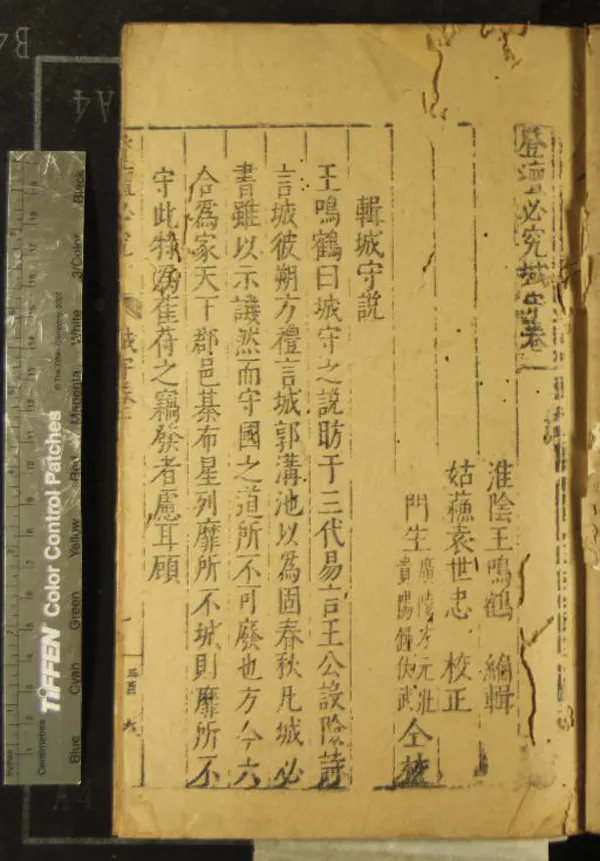 登壇必究城守卷
淮陰王鳴鶴 編輯
姑蘇袁世忠 校正
門生
仝梓
輯城守說
王鳴鶴曰城守之說昉于三代易言王公設險詩
言城彼朔方禮言城郭溝池以為固春秋凡城必
書雖以示譏然而守國之道所不可廢也方今六
合為家天下郡邑棊布星列靡所不城則靡所不
守此特為萑苻之竊發者慮耳顧
登壇必究
城守卷
TIFFEN Color Control Patches
© The Tiffen Company, 2007
Inches
Centimetres
Blue
Cyan
Green
Yellow
Red
Magenta
White
3/Color
Black
A4
B4
A4